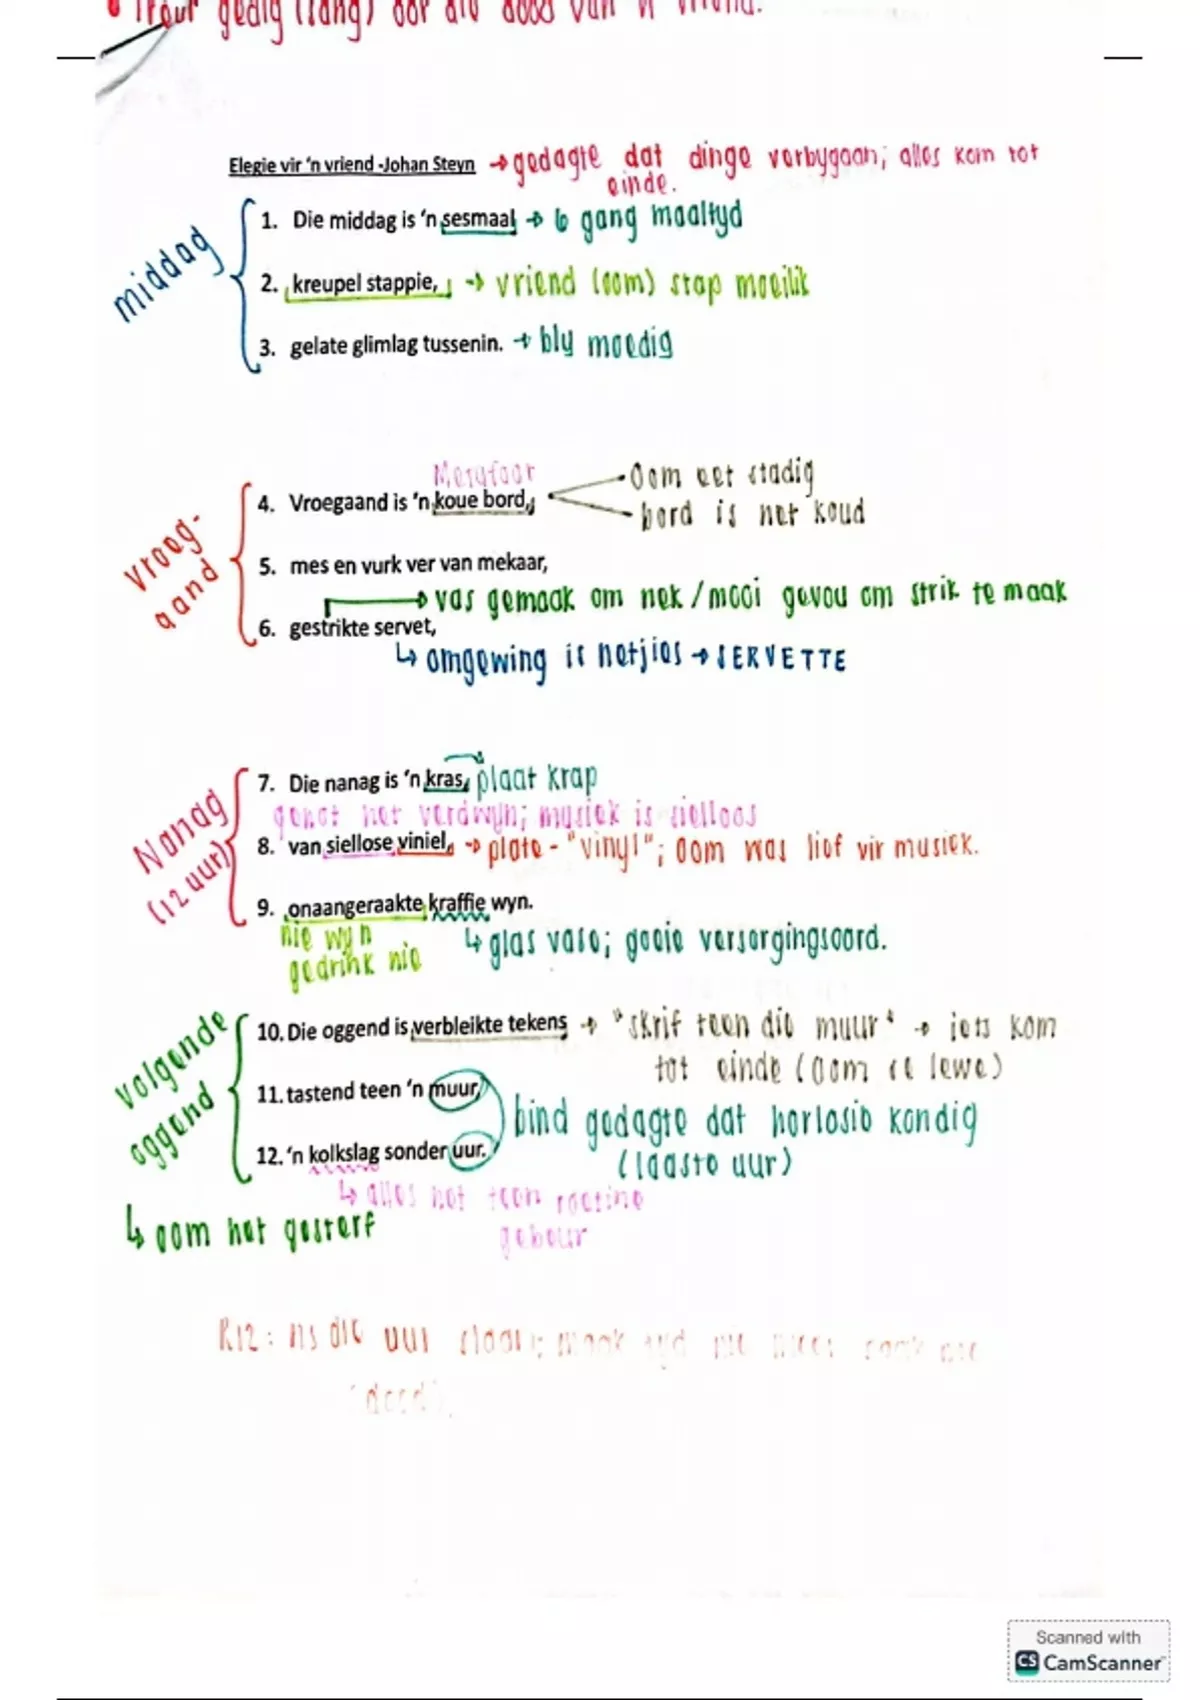 Treur gedig (sang) oor die dood van 'n vriend.
Elegie vir 'n vriend -Johan Steyn → gedagte dat dinge verbygaan; alles kom tot
einde.
middag
1. Die middag is 'n sesmaal → 6 gang maaltyd
2. kreupel stappie, → vriend (oom) stap moeilik
3. gelate glimlag tussenin. → bly moedig
Vroeg-
aand
Metafoor
4. Vroegaand is 'n koue bord,
Oom eet stadig
bord is net koud
5. mes en vurk ver van mekaar,
→ vas gemaak om nek / mooi gevou om strik te maak
6. gestrikte servet,
↳ omgewing is netjies → SERVETTE
Nanag
(12 uur)
7. Die nanag is 'n kras, plaat krap
genot het verdwyn; musiek is sielloos
8. van siellose viniel, → plate - "vinyl"; Oom was lief vir musiek.
9. onaangeraakte kraffie wyn.
nie wyn
gedrink nie
↳ glas vase; goeie versorgingsoord.
volgende
oggend
10. Die oggend is verbleikte tekens → "skrif teen die muur" → iets kom
tot einde (Oom se lewe)
11. tastend teen 'n muur,
bind gedagte dat horlosie kondig
(laaste uur)
12. 'n kolkslag sonder uur.
↳ alles het teen roetine
gebeur
↳ oom het gesterf
R12: As die uur slaan; maak tyd nie meer saak nie
(dood).
Scanned with
CS CamScanner